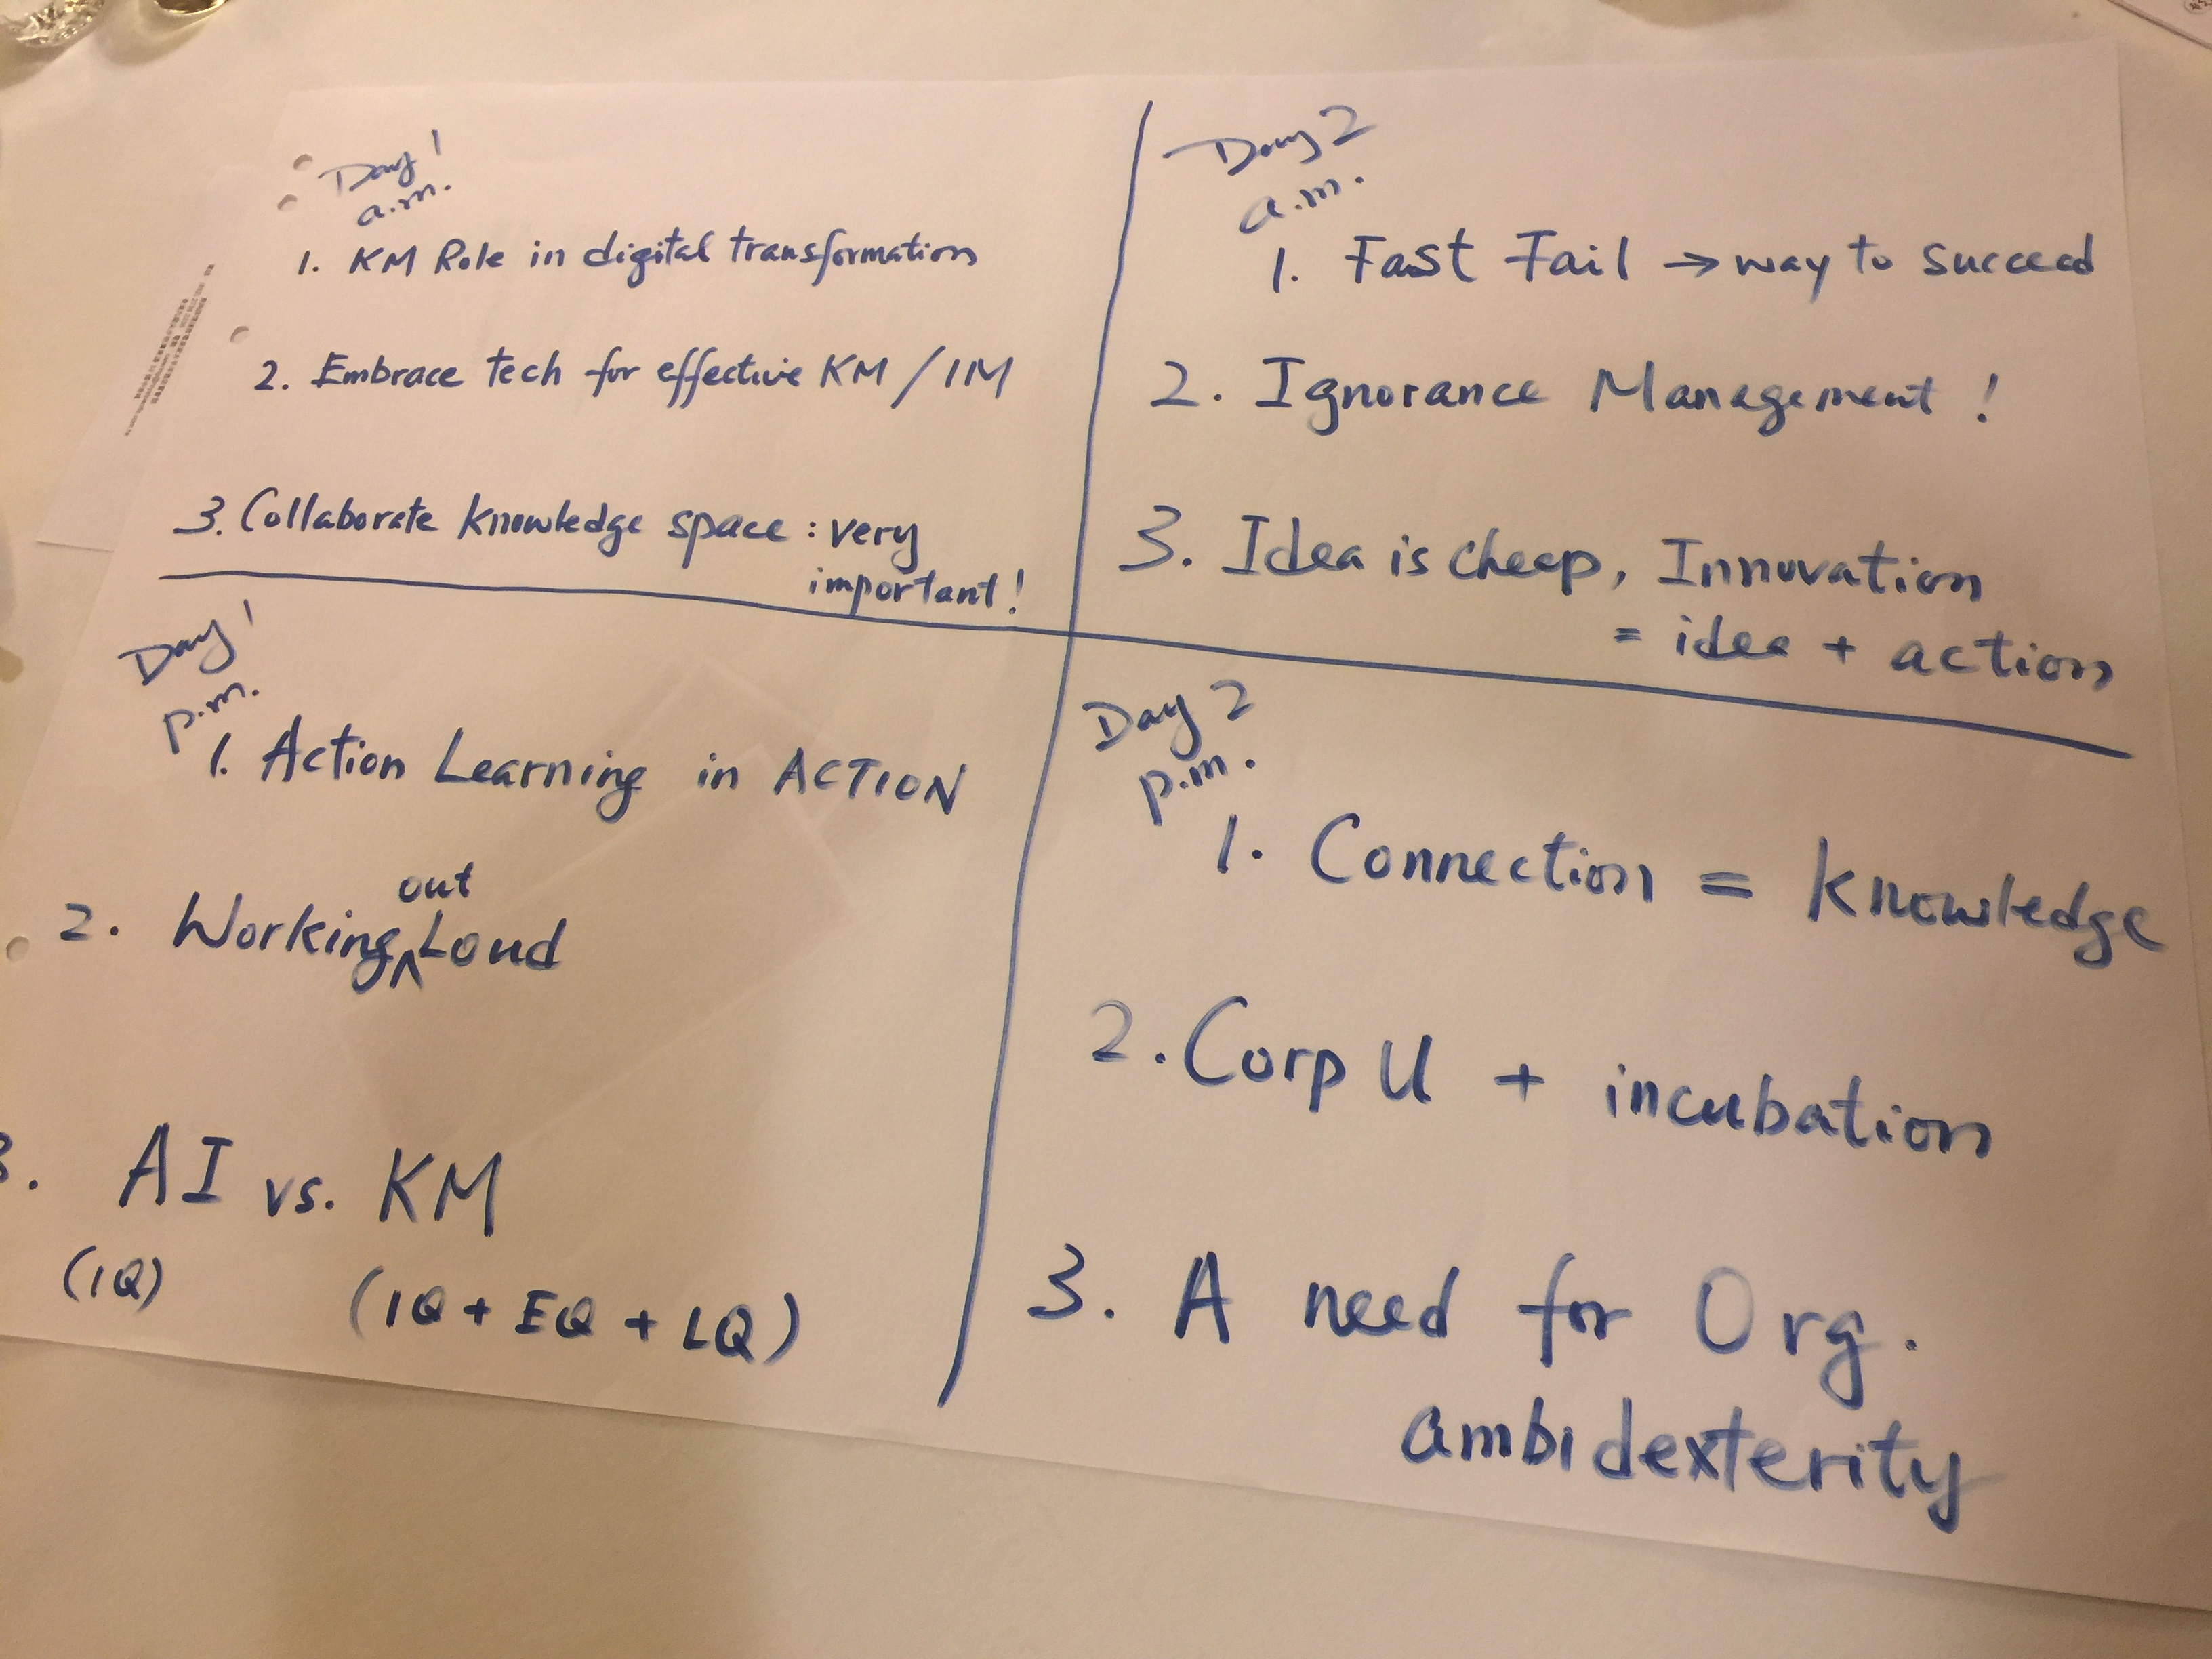 Day 1
a.m.
1. KM Role in digital transformation
2. Embrace tech for effective KM / IM
3. Collaborate knowledge space : very
important!
Day 1
p.m.
1. Action Learning in ACTION
2. Working out Loud
3. AI vs. KM
(IQ) (IQ + EQ + LQ)
Day 2
a.m.
1. Fast Fail → way to succeed
2. Ignorance Management !
3. Idea is cheap, Innovation
= idea + action
Day 2
p.m.
1. Connection = knowledge
2. Corp U + incubation
3. A need for Org.
ambidexterity